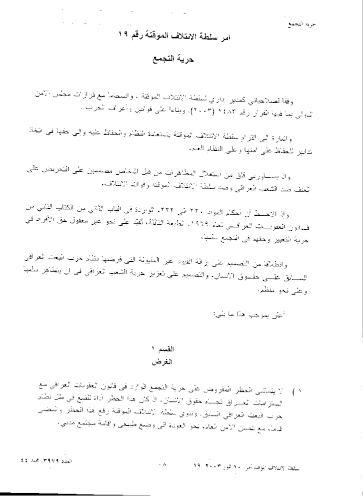 حرية التجمع
أمر سلطة الائتلاف المؤقتة رقم ١٩
حرية التجمع
وفقاً لصلاحياتي كمدير إداري لسلطة الائتلاف المؤقتة، وانسجاماً مع قرارات مجلس الأمن
الدولي بما فيها القرار رقم ١٤٨٣ (٢٠٠٣)، وبناءاً على قوانين وأعراف الحرب،
وإشارة إلى التزام سلطة الائتلاف المؤقتة باستعادة النظام والحفاظ عليه وإلى حقها في اتخاذ
تدابير للحفاظ على أمنها وعلى النظام العام،
وإذ يساورني قلق من استغلال المظاهرات من قبل أشخاص مصممين على التحريض على
العنف ضد الشعب العراقي وضد سلطة الائتلاف المؤقتة وقوات الائتلاف،
وإذ ألاحظ أن أحكام المواد ٢٢٠ إلى ٢٢٢ الواردة في الباب الثاني من الكتاب الثاني من
قانون العقوبات العراقي لعام ١٩٦٩، الطبعة الثالثة، تقيد على نحو غير معقول حق الأفراد في
حرية التعبير وحقهم في التجمع سلمياً،
وانطلاقاً من التصميم على إزالة القيود غير المقبولة التي فرضها نظام حزب البعث العراقي
السابق على حقوق الإنسان، والتصميم على تعزيز حرية الشعب العراقي في أن يتظاهر سلمياً
وعلى نحو منظم،
أعلن بموجب هذا ما يلي:
القسم ١
الغرض
١) لا يتماشى الحظر المفروض على حرية التجمع الوارد في قانون العقوبات العراقي مع
التزامات العراق تجاه حقوق الإنسان، إذ كان هذا الحظر أداة للقمع في ظل نظام
حزب البعث العراقي السابق. وتنوي سلطة الائتلاف المؤقتة رفع هذا الحظر والمضي
قدماً، مع تحسن الأمن العام، نحو العودة إلى وضع طبيعي وإقامة مجتمع مدني.
سلطة الائتلاف المؤقتة أمر ١٩ ١٠ تموز ٢٠٠٣
٨
العدد ٣٩٧٩، مجلد ٤٤